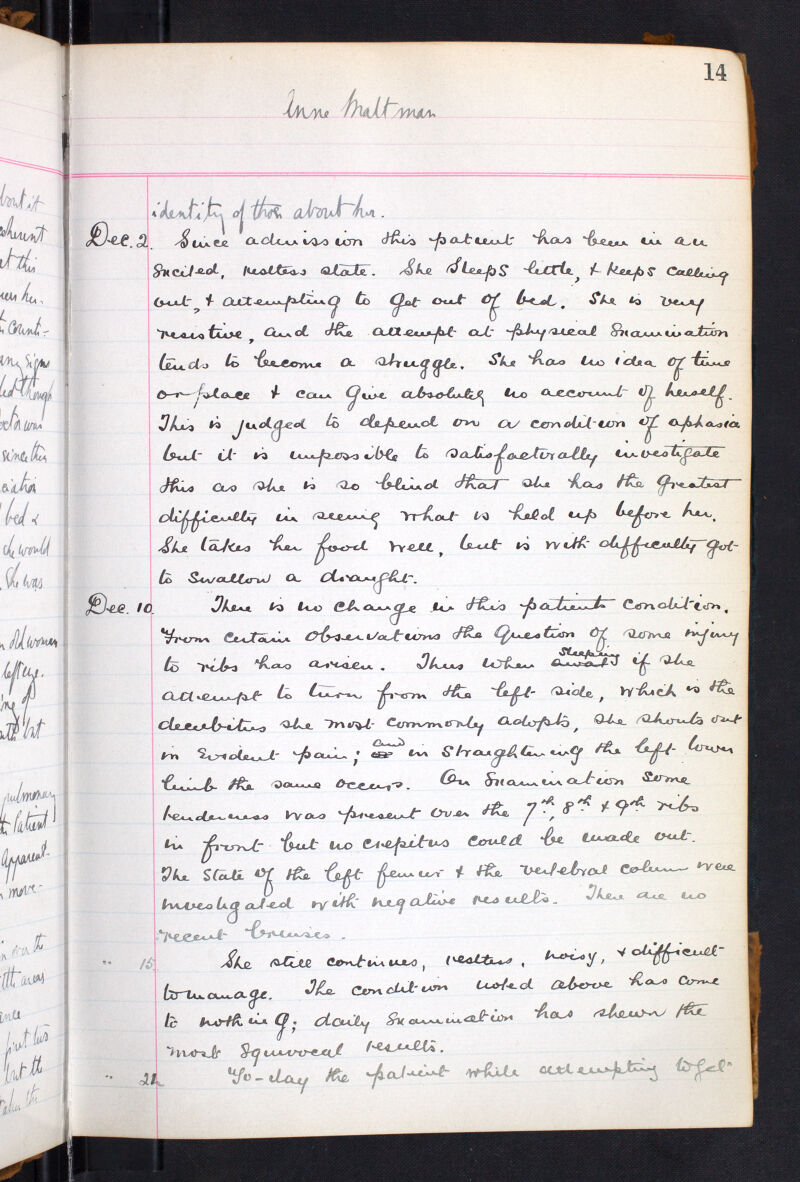 14
Anne Maltman
identity of those about her.
Dec. 2. Since admission this patient has been in an
excited, restless state. She sleeps little, & keeps calling
out, & attempting to get out of bed. She is very
resistive, and the attempt at physical examination
tends to become a struggle. She has no idea of time
or place & can give absolutely no account of herself.
This is judged to depend on a condition of aphasia
but it is impossible to satisfactorally investigate
this as she is so blind that she has the greatest
difficulty in seeing what is held up before her.
She takes her food well, but is with difficulty got
to swallow a draught.
Dec. 10 There is no change in this patients condition.
From certain observations the question of some injury
to ribs has arisen. Thus when sleeping if she
attempt to turn from the left side, which is the
decubitus she most commonly adopts, she shouts out
in evident pain; and in straightening the left lower
limb the same occurs. On examination some
tenderness was present over the 7th, 8th & 9th ribs
in front but no crepitus could be made out.
The state of the left femur & the vertebral column were
investigated with negative results. There are no
recent bruises.
" 15. She still continues, restless, noisy, & difficult
to manage. The condition noted above has come
to nothing; daily examination has shewn the
most equivocal results.
" To-day the patient while attempting to get
about it
at this
her.
any signs
bed &
she would
She was
old woman
left eye.
but
pulmonary
Patient
apparent
move-
in over the
areas
first two
but the